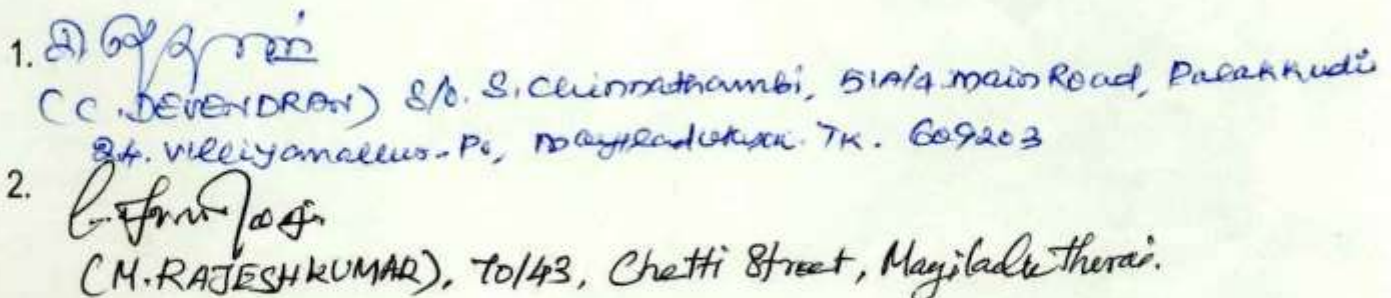 1.
(C. DEVENDRAN) S/o. S. Chinnathambi, 51A/4 Main Road, Palakkudi
24. Villiyanallur-Po, Mayiladuthurai TK. 609203
2.
(M.RAJESHKUMAR), 70/43, Chetti Street, Mayiladuthurai.